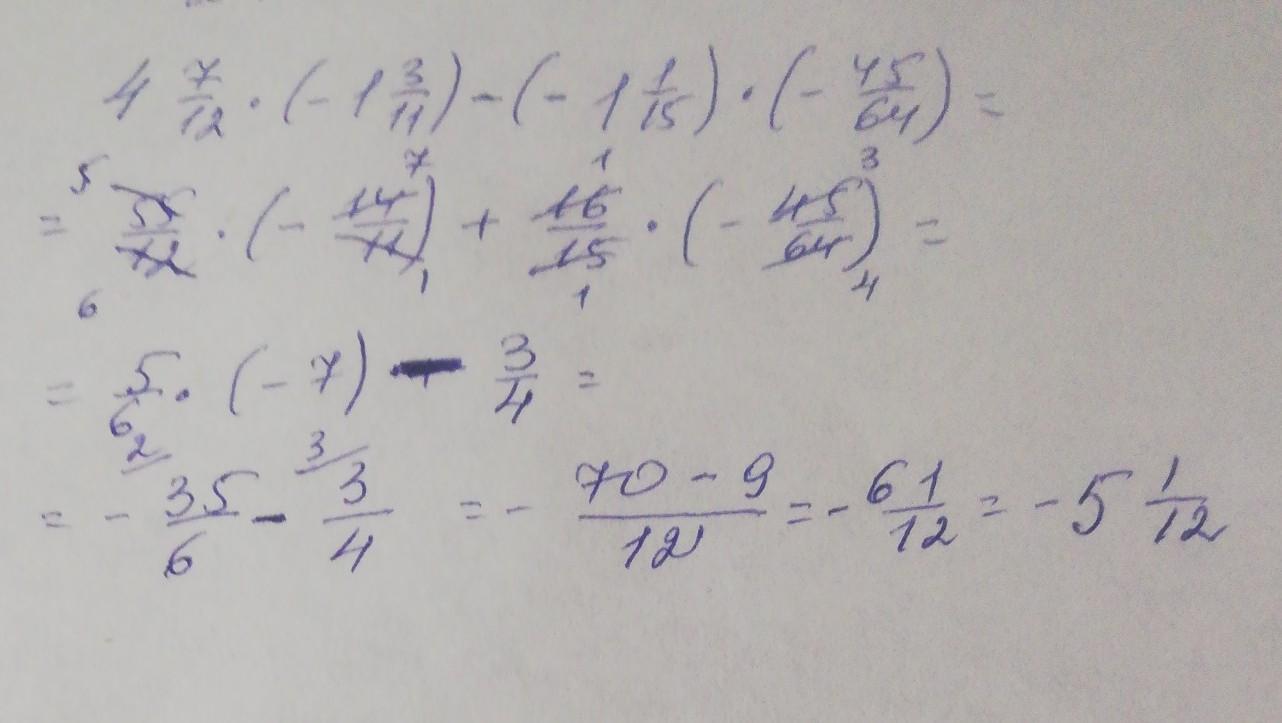 4 7/12 · (- 1 3/11) - (- 1 1/15) · (- 45/64) =
= 55/12 · (- 14/11) + 16/15 · (- 45/64) =
5 7 1 3
6 1 1 4
= 5/6 · (- 7) - 3/4 =
2 3
= - 35/6 - 3/4 = - 70 - 9/12 = - 61/12 = - 5 1/12